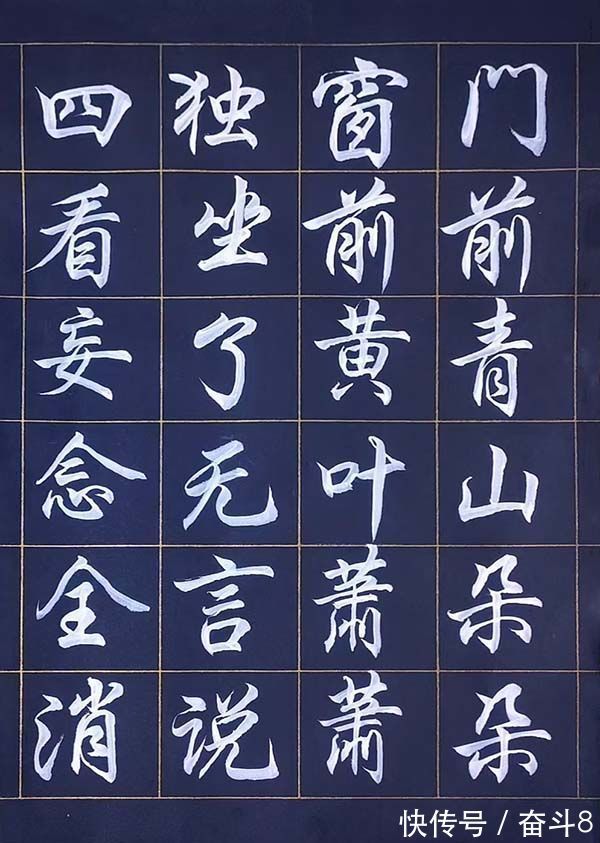 門前青山朵朵
窗前黄叶蕭蕭
独坐了无言说
四看妄念全消
快传号 / 奋斗8